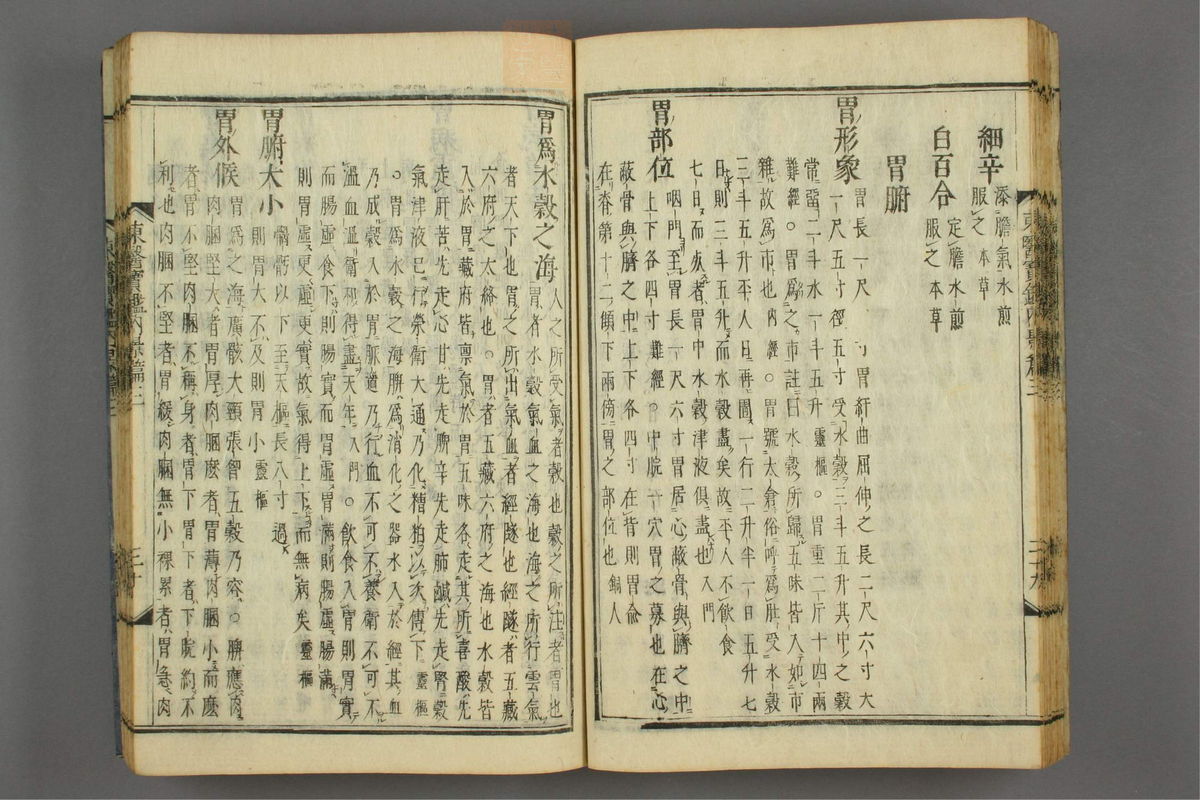 細辛 添膽氣水煎
服之 本草
白百合 定膽水煎
服之 本草
胃腑
胃形象 胃長一尺 胃紆曲屈伸之長二尺六寸大
一尺五寸徑五寸受水穀三斗五升其中之穀
常留二斗水一斗五升 靈樞 ○胃重二斤十四兩
難經 ○胃爲之市註曰水穀所歸五味皆入如市
雜故爲市也 內經 ○胃號太倉俗呼爲肚受水穀
三斗五升平人日再圊一行二升半一日五升七
日則三斗五升而水穀盡矣故平人不飮食
七日而死者胃中水穀津液俱盡也 入門
胃部位 咽門至胃長一尺六寸胃居心蔽骨與臍之中
上下各四寸 難經 ○中脘一穴胃之募也在心
蔽骨與臍之中上下各四寸在背則胃兪
在脊第十二顀下兩傍胃之部位也 銅人
胃爲水穀之海 人之所受氣者穀也穀之所注者胃也
胃者水穀氣血之海也海之所行雲氣
者天下也胃之所出氣血者經隧也經隧者五藏
六府之大絡也○胃者五藏六府之海也水穀皆
入於胃藏府皆稟氣於胃五味各走其所喜酸先
走肝苦先走心甘先走脾辛先走肺鹹先走腎穀
氣津液已行榮衛大通乃化糟粕以次傳下 靈樞
○胃爲水穀之海脾爲消化之器水入於經其血
乃成穀入於胃脈道乃行血不可不養衛不可不
溫血溫衛和得盡天年 入門 ○飮食入胃則胃實
而腸虛食下則腸實而胃虛胃滿則腸虛腸滿
則胃虛更虛更實故氣得上下而無病矣 靈樞
胃腑大小 𩩲骬以下至天樞長八寸 過
則胃大不及則胃小 靈樞
胃外候 胃爲之海廣骸大頸張胷五穀乃容○脾應肉
肉䐃堅大者胃厚肉䐃麽者胃薄肉䐃小而麽
者胃不堅肉䐃不稱身者胃下胃下者下脘約不
利也肉䐃不堅者胃緩肉䐃無小裸累者胃急肉
東醫寶鑑內景篇三
三十